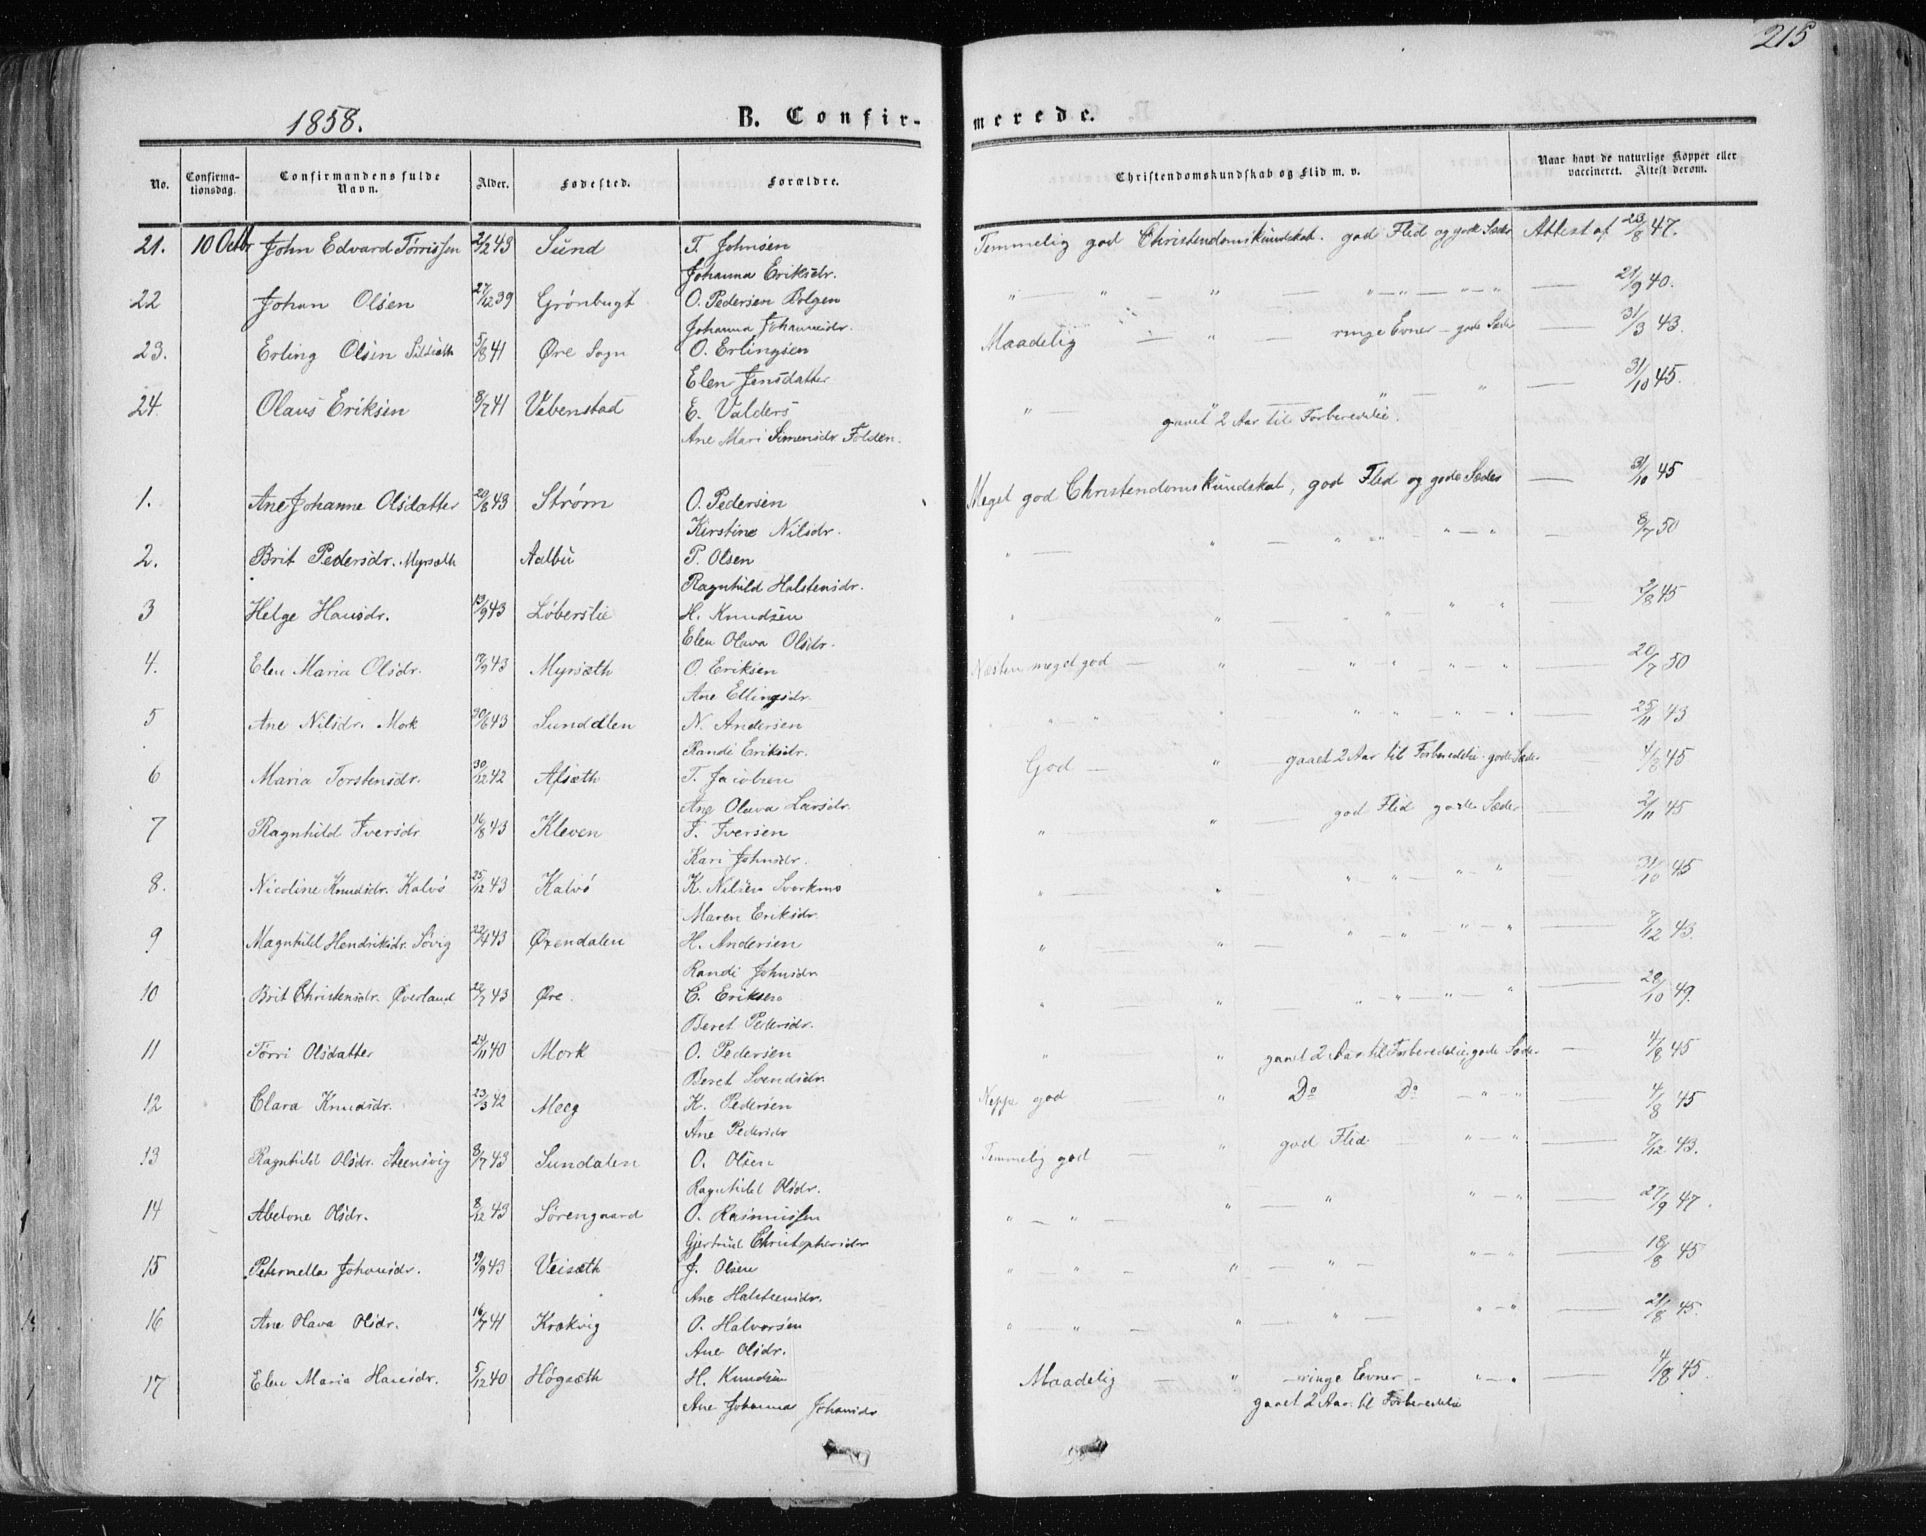 215
1858. B. Confir- merede.
No. Confirma-tionsdag. Confirmandens fulde Navn. Alder. Fødested. Forældre. Christendomskundskab og Flid m. v. Naar havt de naturlige Kopper eller vaccineret. Attest derom.
21. 10 Octbr John Edvard Tørrissen 2/2 43 Sund T. Johnsen Temmelig god Christendomskundskab. god Flid og gode Sæder Attest af 23/8 47.
Johanna Eriksdr.
22 Johan Olsen 27/12 39 Grønbugt O. Pedersen Bolgen " — " — " — " — " — " — " — 21/9 40.
Johanna Johannesdr.
23. Erling Olsen 5/8 41 Øre Sogn O. Erlingsen Maadelig — " — ringe Evner — gode Sæder — 31/3 43.
Elen Jensdatter
24. Olaus Eriksen 8/7 41 Vebenstad E. Valders " — " — " — 31/10 45.
Ane Mari Simensdr. Folden. gaaet 2 Aar til Forberedelse.
1. Ane Johanne Olsdatter 20/8 43 Strøm O. Pedersen Meget god Christendomskundskab, god Flid og gode Sæder — 31/10 45
Kirstine Nilsdr.
2. Brit Pedersdr. Myrsæth Aalbu P. Olsen " — " " — " " — " 8/7 50
Ragnhild Halstensdr.
3 Helge Hansdr. 13/9 43 Løberslie H. Knudsen " — " " " " — 2/8 45
Elen Olava Olsdr.
4. Elen Maria Olsdr. 17/9 43 Myrsæth O. Eriksen Næsten meget god — " " — " — " — " — 20/7 50
Ane Ellingsdr.
5 Ane Nilsdr. Mork 30/6 43 Sunddlen N. Andersen " — " " " — " — " — 25/11 43
Randi Eriksdr.
6 Maria Torstensdr. 30/12 42 Alsæth T. Jacobsen God — " — gaaet 2 Aar til Forberedelse. gode Sæder 4/8 45
Ane Olava Larsdr.
7 Ragnhild Iversdr 16/8 43 Kleven I. Iversen " — " — god Flid gode Sæder — 2/11 45
Kari Johnsdr.
8. Nicoline Knudsdr. Kalvø 25/12 43 Kalvø K. Nilsen Svorkmo " — " " " — " — " 31/10 45
Maren Eriksdr.
9 Magnhild Hendriksdr. Søvig 22/4 43 Øxendalen H. Andersen " — " " — " — " — " — 7/12 43.
Randi Johnsdr
10 Brit Christensdr. Øverland 22/7 43 Øre. C. Eriksen " — " " — " — " — " — 20/10 49.
Beret Pedersdr.
11 Tørri Olsdatter 24/11 40 Mork O. Pedersen " " gaaet 2 Aar til Forberedelse, gode Sæder — 4/8 45
Beret Svendsdr.
12 Clara Knudsdr. 23/3 42 Meeg K. Pedersen Neppe god — " Do Do — " — " — 4/8 45
Ane Pedersdr
13 Ragnhild Olsdr. Steensvig 8/7 43 Sundalen O. Olsen Temmelig god — " god Flid — " — " — 7/12 43.
Ragnhild Olsdr.
14 Abelone Olsdr. 8/12 43 Sørengaard O. Rasmussen " — " — " — " " — " — 27/9 47.
Gjertrud Christophersdr
15 Peternella Johansdr. 19/9 43 Veisæth J. Olsen " " — " — " — " " — " — 18/8 45
Ane Halstensdr.
16 Ane Olava Olsdr. 16/7 41 Krokvig O. Halvorsen " — " — " — " — " — 21/8 45.
Ane Olsdr.
17 Elen Maria Hansdr. 5/12 40 Høgsæth H. Knudsen Maadelig — " — ringe Evner — " — " 4/8 45.
Ane Johannas Johansdr gaaet 2 Aar til Forberedelse